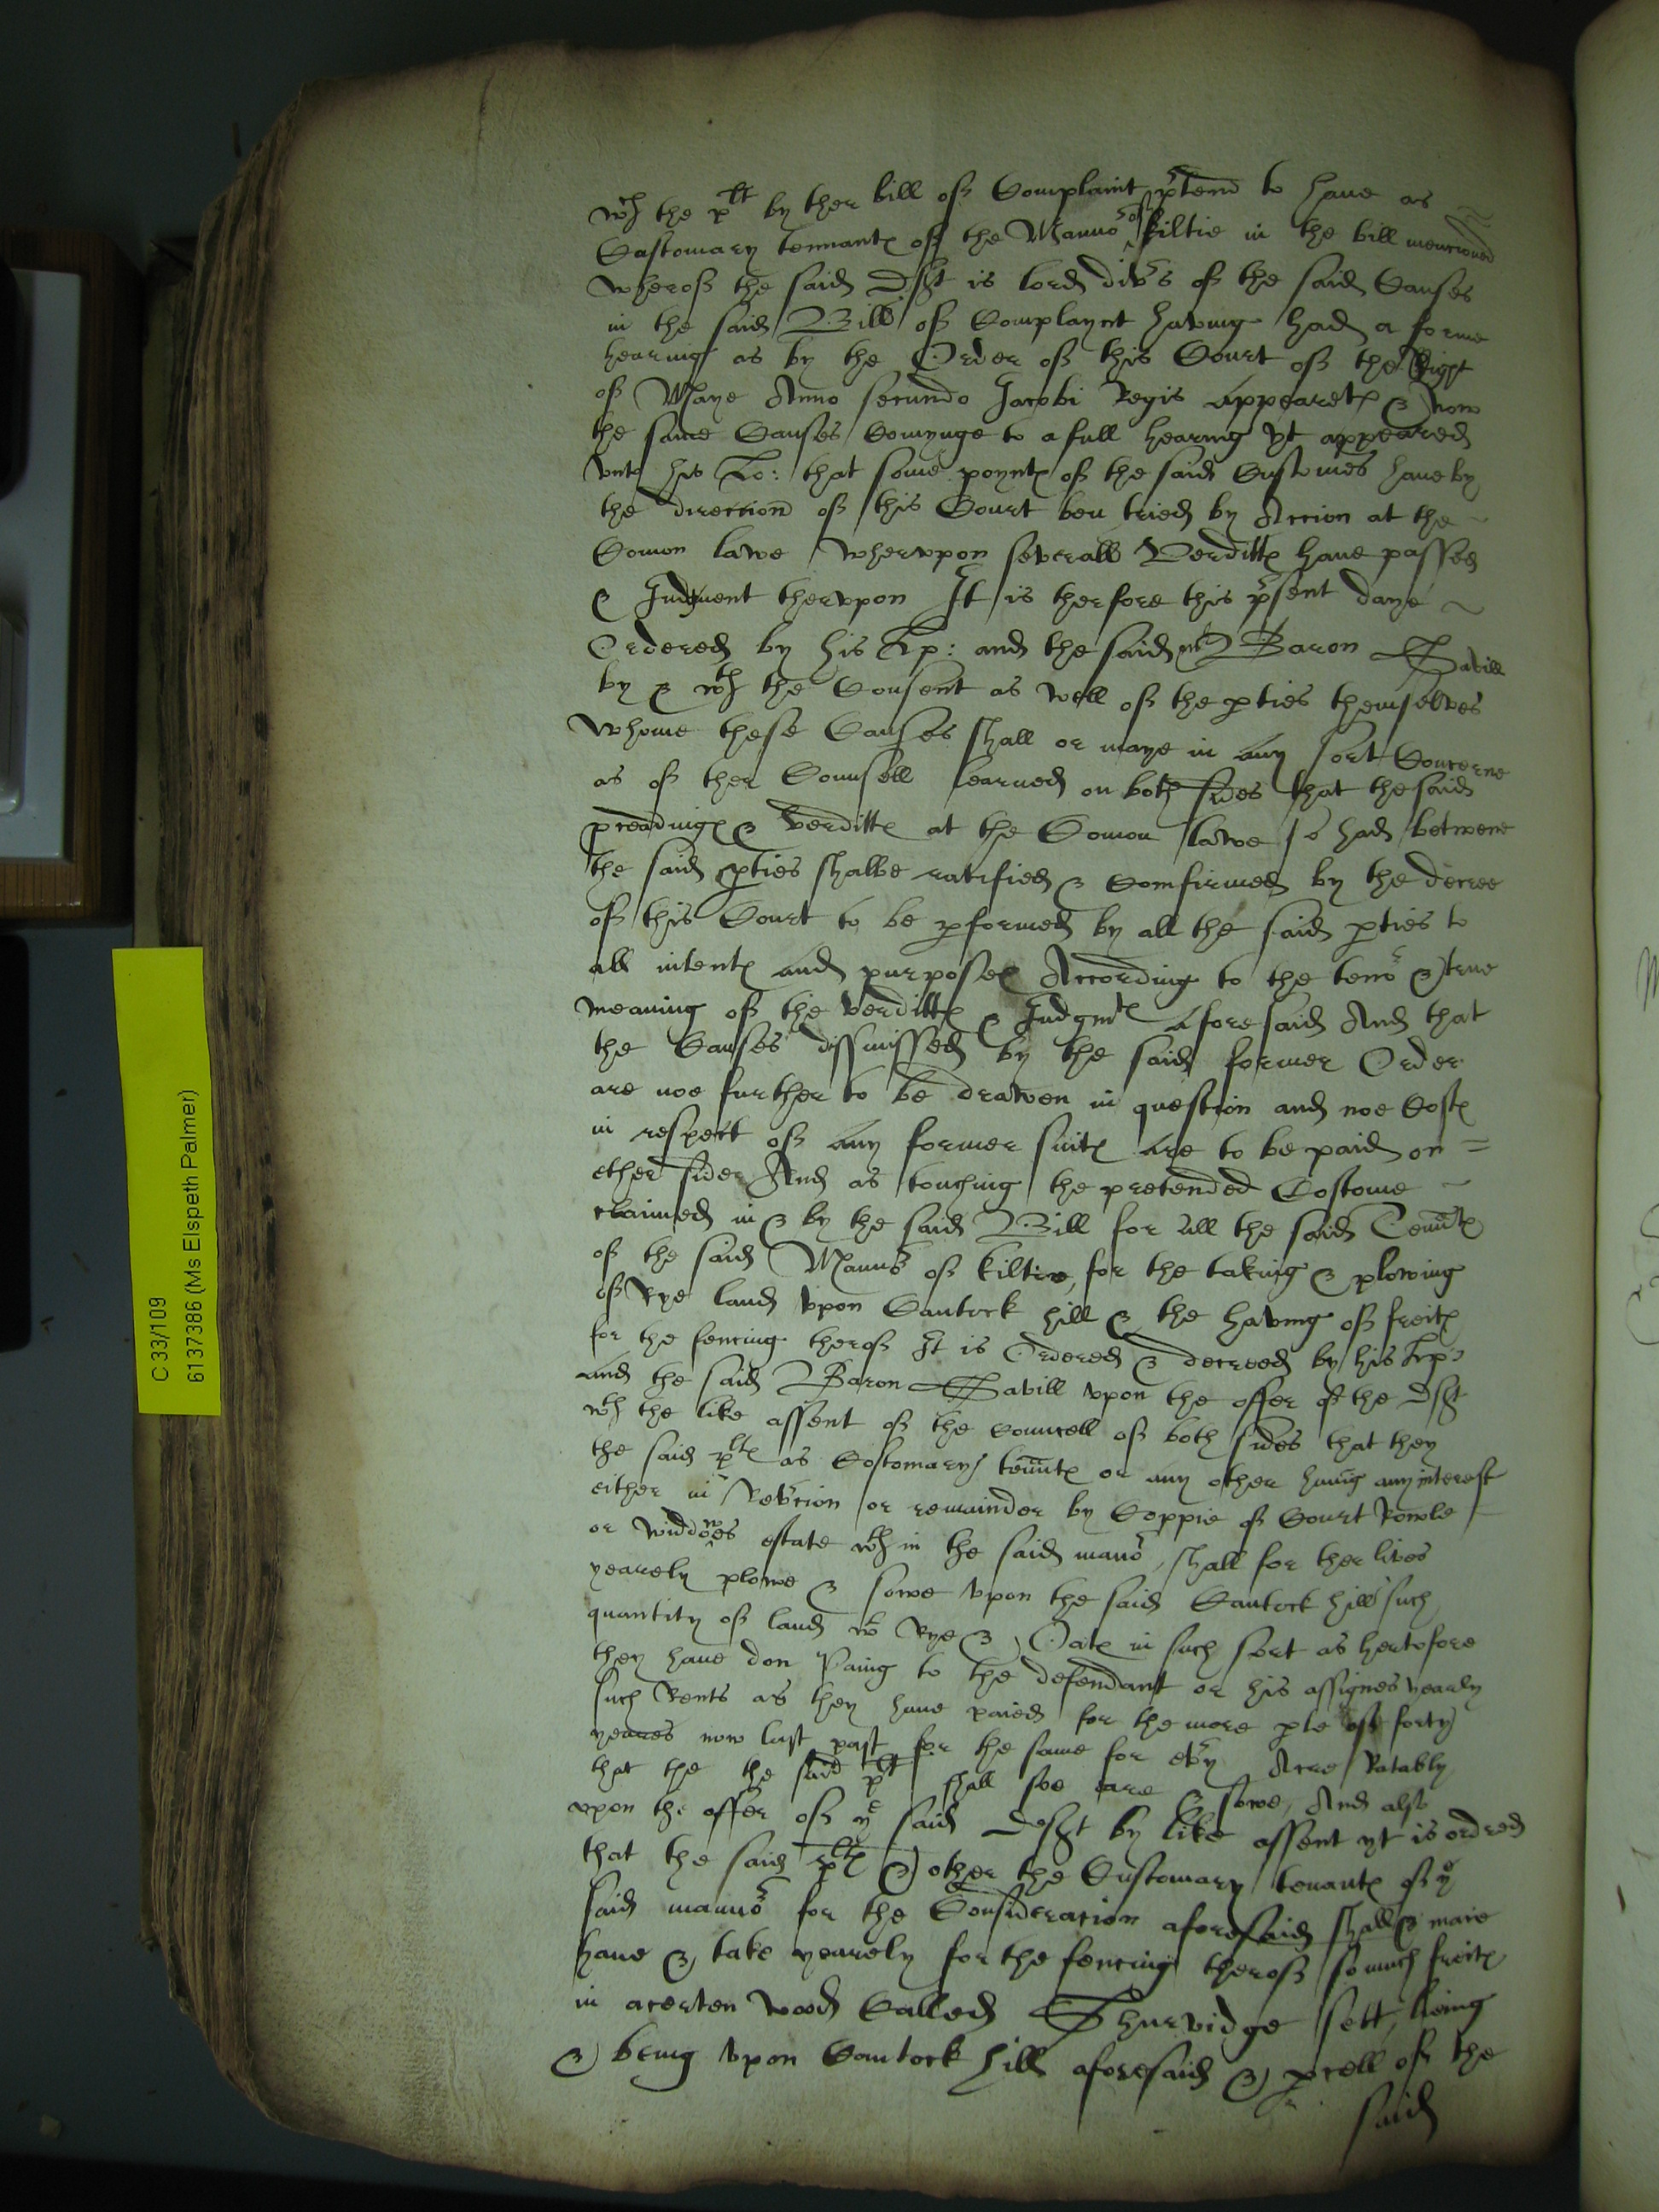 wch the plt by ther bill of Complaint p̄tend to haue as
Castomary tennantℯ of the Manno of kiltie in the bill mencioned
wherof the said Dft is lord divs of the said Causes
in the said Bill of Complaynt having had a forme
hearing as by the Order of this Court of the Eight
of Maye Anno secundo Jacobi Regis appeareth & now
the same Causes Comynge to a full hearing yt appeared
vnto his Lo: that some poyntℯ of the said Custumes haue by
the direccion of this Court ben tried by Accion at the
Comon lawe whervpon severall Verdittℯ haue passed
& Judgment thervpon It is therfore this p̄sent daye
Ordered by his Lp: and the said mr Baron Savill
by & wth the Consent as well of the pties themselves
whome these Causes shall or maye in any sort Concerne
as of ther Counsell learned on both sides that the said
pceadingℯ & verdittℯ at the Comon lawe so had betwene
the said pties shalbe ratified & Comfirmed by the decree
of this Court to be pformed by all the said pties to
all intentℯ and purposeℯ According to the teno & true
meaning of the verdittℯ & Judgmtℯ aforesaid And that
the Causes dissmissed by the said former Order
are noe further to be drawen in question and noe Costℯ
in respect of any former suitℯ are to be paid on =
ether side And as touching the pretended Costome
claimed in & by the said Bill for all the said Tenntℯ
of the said Manno of kiltie, for the taking & plowing
of Rye land vpon Cantock hill & the having of freitℯ
for the fencing therof It is Ordered & decreed by his Lp:
and the said Baron Savill vpon the offer of the Dft
wth the like assent of the Councell of both sides that they
the said pltℯ as Costomary tenntℯ or any other having any interest
either in Revercion or remainder by Coppie of Court Rowle
or widdowes estate wthin the said mano, shall for ther lives
yearely plowe & sowe vpon the said Cantock hill such
quantity of land wth Rye & Oatℯ in such sort as hertofore
they haue don Paing to the defendant or his assignes yearly
such Rents as they haue paied for the more pte of forty
yeares now last past for the same for evy Acre Ratably
that the the said plt shall soe eare & sowe, And also
vpon the offer of ye said Deft by like assent yt is ordred
that the said pltℯ & other the Customary tenantℯ of ye
said manno for the Consideracion aforesaid shall & maie
haue & take yearely for the fencing therof so much freitℯ
in acerten wood Called Shurvidge sett, lieing
& being vpon Cantock hill aforesaid & pcell of the
said
C 33/109
6137386 (Ms Elspeth Palmer)